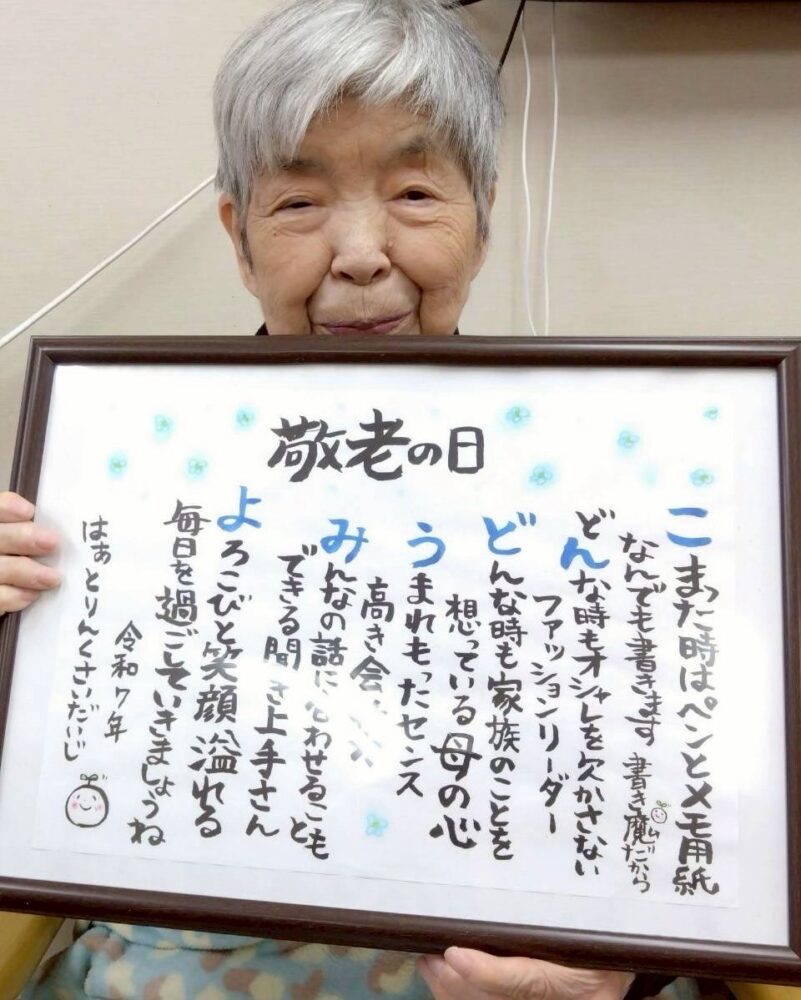 敬老の日
こまった時はペンとメモ用紙
なんでも書きます 書き魔だから
どんな時もオシャレを欠かさない
ファッションリーダー
どんな時も家族のことを
想っている母の心
うまれもったセンス
高き会
みんなの話に合わせることも
できる聞き上手さん
よろこびと笑顔溢れる
毎日を過ごしていきましょうね
令和7年
はぁとりんくさいだいじ